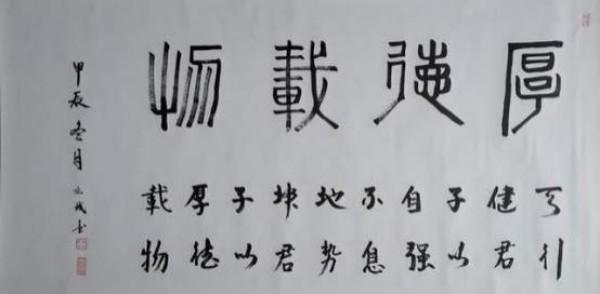 厚德載物
天行
健君
子以
自强
不息
地势
坤君
子以
厚德
載物
甲辰冬月